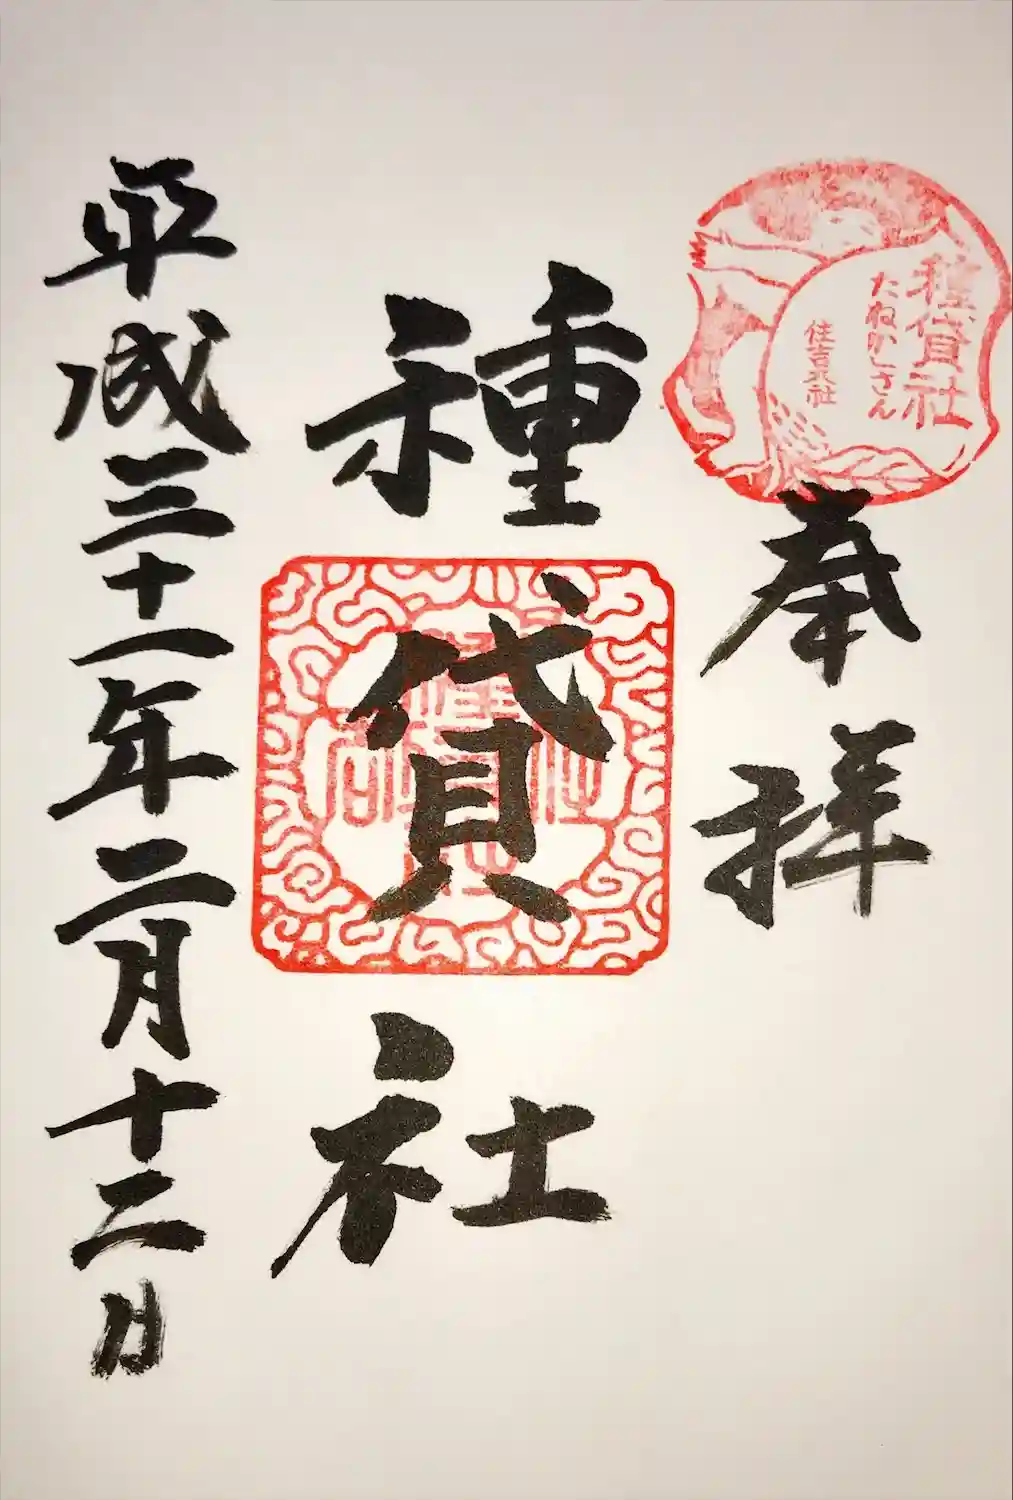 種貸社
たねかしさん
住吉大社
奉拝
種貸社
平成三十一年二月十二日